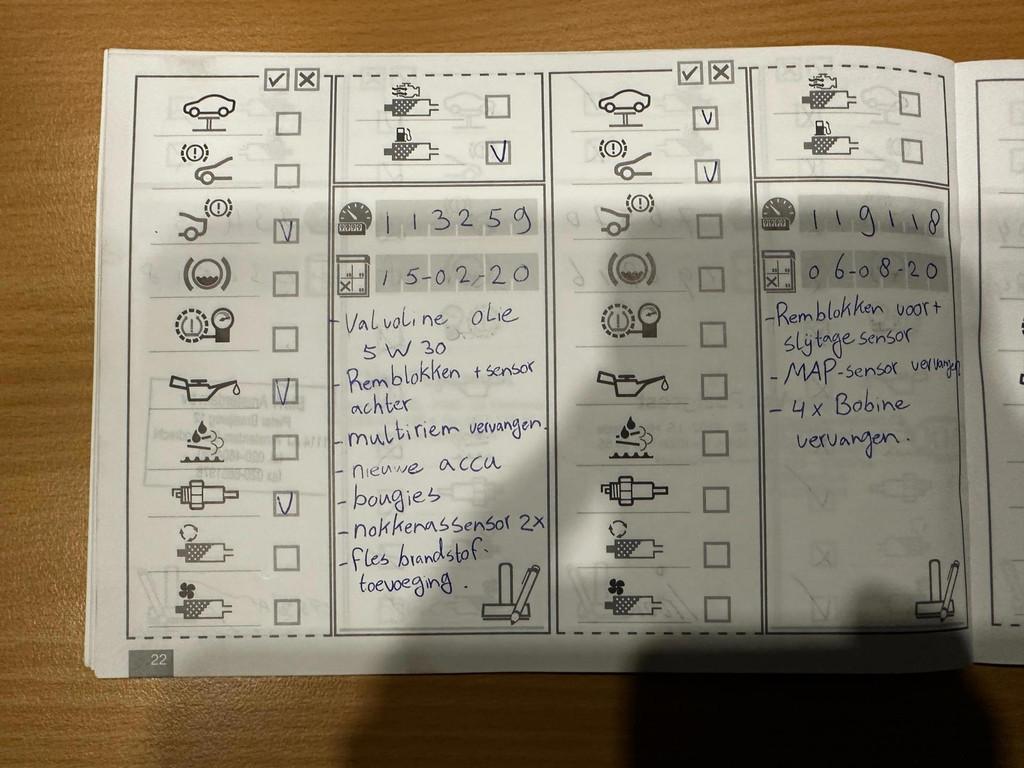 113259
15-02-20
- Valvoline olie
5 W 30
- Remblokken + sensor
achter
- multiriem vervangen.
- nieuwe accu
- bougies
- nokkenassensor 2x
- fles brandstof.
toevoeging.
119118
06-08-20
- Remblokken voor +
slijtage sensor
- MAP-sensor vervangen
- 4 x Bobine
vervangen.
22